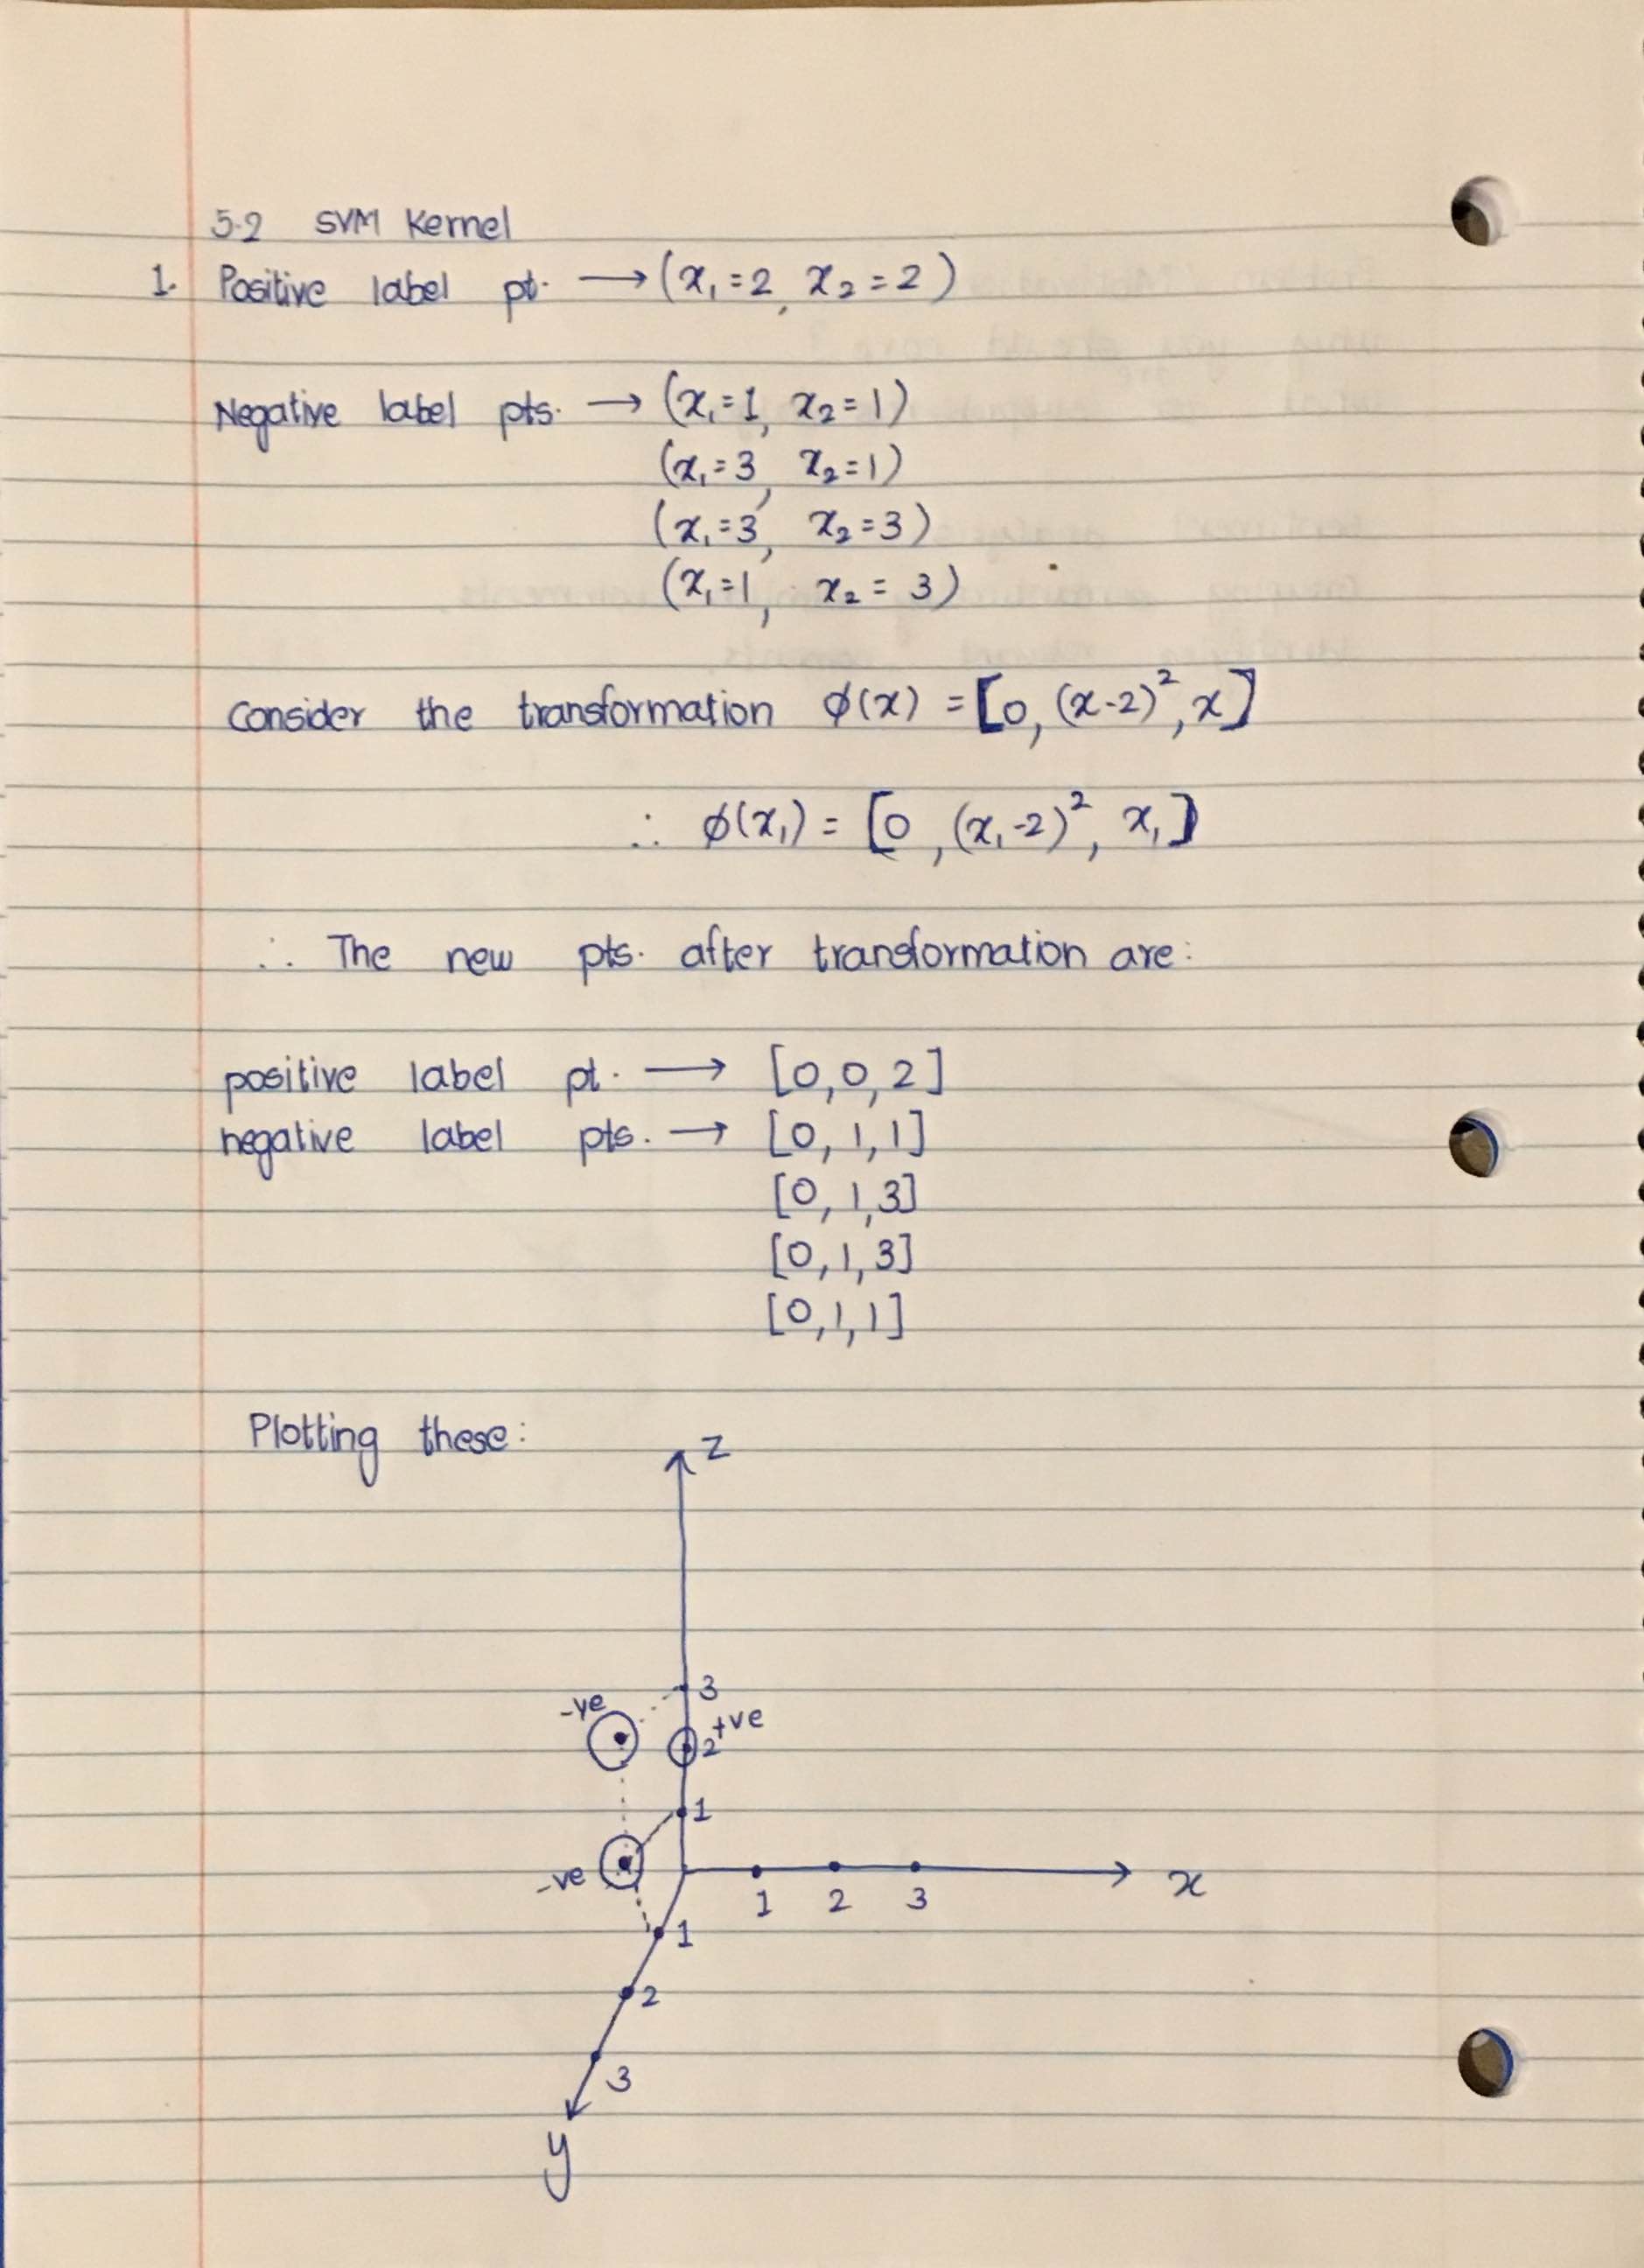 5.2 SVM Kernel
1. Positive label pt. → (x₁=2, x₂=2)
Negative label pts. → (x₁=1, x₂=1)
(x₁=3, x₂=1)
(x₁=3, x₂=3)
(x₁=1, x₂=3)
Consider the transformation ϕ(x) = [0, (x-2)², x]
∴ ϕ(x₁) = [0, (x₁-2)², x₁]
∴ The new pts. after transformation are:
positive label pt. → [0,0,2]
negative label pts. → [0,1,1]
[0,1,3]
[0,1,3]
[0,1,1]
Plotting these:
z
3
-ve
+ve
2
1
-ve
x
1 2 3
1
2
3
y